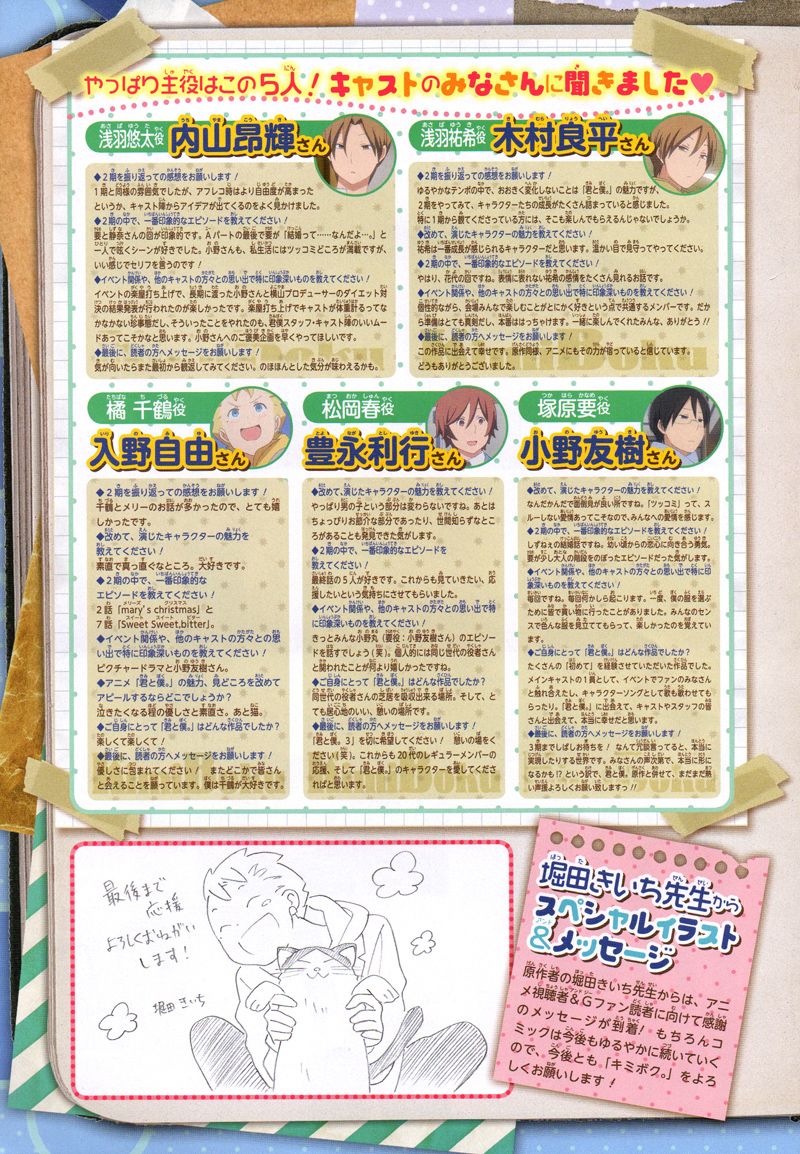 やっぱり主役はこの5人！ キャストのみなさんに聞きました♥
浅羽悠太役 内山昂輝さん
◆2期を振り返っての感想をお願いします！
1期と同様の雰囲気でしたが、アフレコ時はより自由度が高まった
というか、キャスト陣からアイデアが出てくるのをよく見かけました。
◆2期の中で、一番印象的なエピソードを教えてください！
要と静奈さんの回が印象的です。Aパートの最後で要が「結婚って……なんだよ…。」と
一人で呟くシーンが好きでした。小野さんも、私生活にはツッコミどころが満載ですが、
いい感じでセリフを言うのです！
◆イベント関係や、他のキャストの方々との思い出で特に印象深いものを教えてください！
イベントの楽屋打ち上げで、長期に渡った小野さんと横山プロデューサーのダイエット対
決の結果発表が行われたのが楽しかったです。楽屋打ち上げでキャストが体重計るってな
かなかない珍事態だし、そういったことをやれたのも、君僕スタッフ・キャスト陣のいいムード
あってこそかなと思います。小野さんへのご褒美企画を早くやってほしいです。
◆最後に、読者の方へメッセージをお願いします！
気が向いたらまた最初から観返してみてください。のほほんとした気分が味わえるかも。
浅羽祐希役 木村良平さん
◆2期を振り返っての感想をお願いします！
ゆるやかなテンポの中で、おおきく変化しないことは「君と僕。」の魅力ですが、
2期をやってみて、キャラクターたちの成長がたくさん詰まっていると感じました。
特に1期から観てくださっている方には、そこも楽しんでもらえるんじゃないでしょうか。
◆改めて、演じたキャラクターの魅力を教えてください！
祐希は一番成長が感じられるキャラクターだと思います。温かい目で見守ってやってください。
◆2期の中で、一番印象的なエピソードを教えてください！
やはり、花代の回ですね。表情に表れない祐希の感情をたくさん見れるお話です。
◆イベント関係や、他のキャストの方々との思い出で特に印象深いものを教えてください！
個性的ながら、会場みんなで楽しむことがとにかく好きという点で共通するメンバーです。だか
ら準備はとても真剣だし、本番ははっちゃけます。一緒に楽しんでくれたみんな、ありがとう！！
◆最後に、読者の方へメッセージをお願いします！
この作品に出会えて幸せです。原作同様、アニメにもその力が宿っていると信じています。
どうもありがとうございました。
橘 千鶴役
入野自由さん
◆2期を振り返っての感想をお願いします！
千鶴とメリーのお話が多かったので、とても嬉
しかったです。
◆改めて、演じたキャラクターの魅力を
教えてください！
素直で真っ直ぐなところ。大好きです。
◆2期の中で、一番印象的な
エピソードを教えてください！
2話「mary's christmas」と
7話「Sweet Sweet,bitter」。
◆イベント関係や、他のキャストの方々との思
い出で特に印象深いものを教えてください！
ピクチャードラマと小野友樹さん。
◆アニメ「君と僕。」の魅力、見どころを改めて
アピールするならどこでしょうか？
泣きたくなる程の優しさと素直さ。あと猫。
◆ご自身にとって「君と僕。」はどんな作品でしたか？
楽しくて楽しくて！
◆最後に、読者の方へメッセージをお願いします！
優しさに包まれてください！ またどこかで皆さん
と会えることを願っています。僕は千鶴が大好きです。
松岡春役
豊永利行さん
◆改めて、演じたキャラクターの魅力を教えてください！
やっぱり男の子という部分は変わらないですね。あとは
ちょっぴりお節介な部分であったり、世間知らずなとこ
ろがあることも発見できた気がします。
◆2期の中で、一番印象的なエピソードを
教えてください！
最終話の5人が好きです。これからも見ていきたい、応
援したいという気持ちにさせてもらいました。
◆イベント関係や、他のキャストの方々との思い出で特
に印象深いものを教えてください！
きっとみんな小野丸（要役：小野友樹さん）のエピソー
ドを話すでしょう（笑）。個人的には同じ世代の役者さん
と関われたことが何より嬉しかったですね。
◆ご自身にとって「君と僕。」はどんな作品でしたか？
同世代の役者さんの芝居を吸収出来る場所。そして、と
ても居心地のいい、憩いの場所です。
◆最後に、読者の方へメッセージをお願いします！
「君と僕。3」を切に希望してください！ 憩いの場をくだ
さい（笑）。これからも20代のレギュラーメンバーの
応援、そして「君と僕。」のキャラクターを愛してくださ
ればと思います。
塚原要役
小野友樹さん
◆改めて、演じたキャラクターの魅力を教えてください！
なんだかんだで面倒見が良い所ですね。「ツッコミ」って、ス
ルーしない愛情あってこそなので、みんなへの愛情を感じます。
◆2期の中で、一番印象的なエピソードを教えてください！
しずねぇの結婚話ですね。幼い頃からの恋心に向き合う勇気。
要が少し大人の階段をのぼったエピソードだった気がします。
◆イベント関係や、他のキャストの方々との思い出で特に印
象深いものを教えてください！
毎回ですね。毎回何かしら起こります。一度、僕の服を選ぶ
ために皆で買い物に行ったことがありました。みんなのセン
スで色んな服を見立ててもらって、楽しかったのを覚えてい
ます。
◆ご自身にとって「君と僕。」はどんな作品でしたか？
たくさんの「初めて」を経験させていただいた作品でした。
メインキャストの1員として、イベントでファンのみなさん
と触れ合えたし、キャラクターソングとして歌も歌わせても
らったり。「君と僕。」に出会えて、キャストやスタッフの皆
さんと出会えて、本当に幸せだと思います。
◆最後に、読者の方へメッセージをお願いします！
3期までしばしお待ちを！ なんて冗談言ってると、本当に
実現したりする世界です。みなさんの声次第で、本当に形に
なるかも!? という訳で、君と僕。原作と併せて、まだまだ熱
い声援よろしくお願い致しますっ！！
最後まで
応援
よろしくおねがい
します！
堀田きいち
堀田きいち先生から
スペシャルイラスト
&メッセージ
原作者の堀田きいち先生からは、アニ
メ視聴者&Gファン読者に向けて感謝
のメッセージが到着！ もちろんコ
ミックは今後もゆるやかに続いていく
ので、今後とも、「キミボク。」をよろ
しくお願いします！